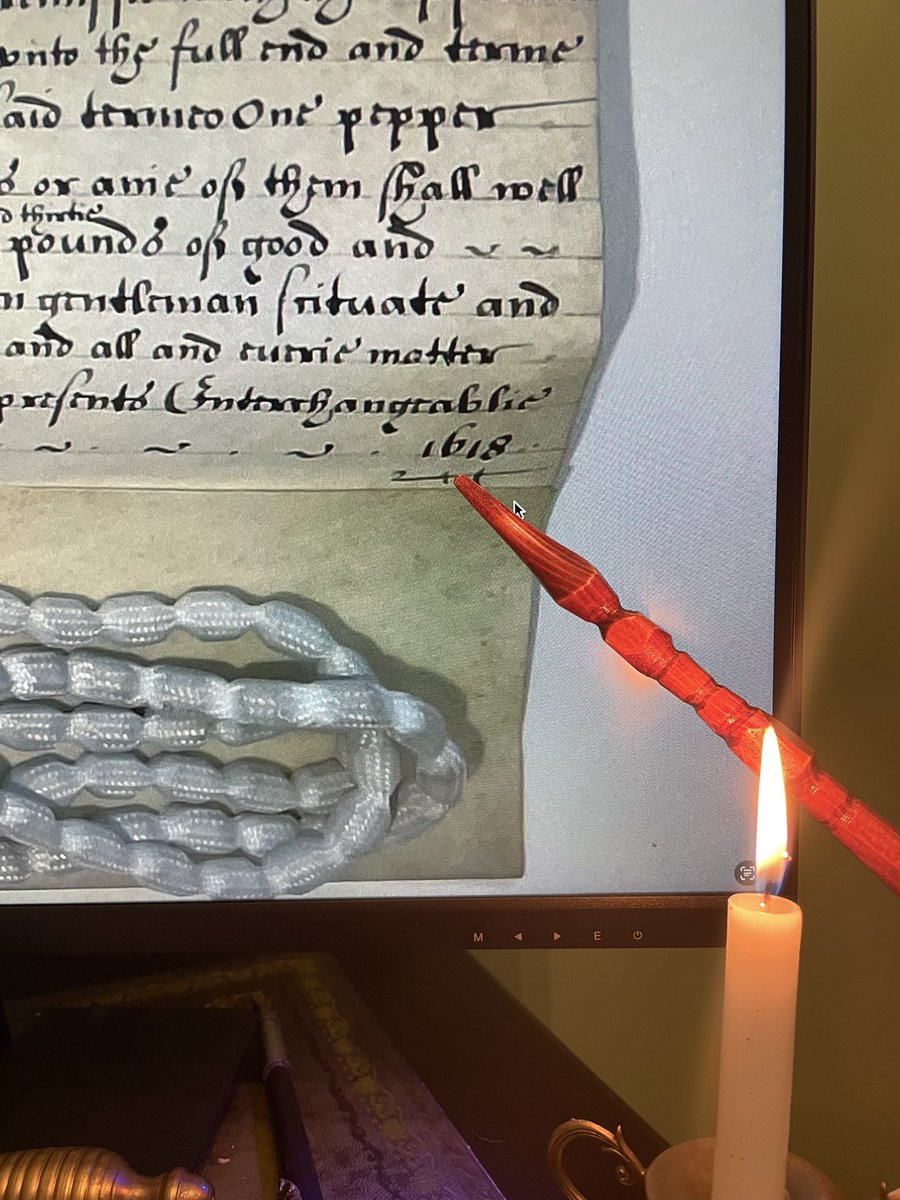 onto the full end and terme
said termeo One pepper
or anie of them shall well
d thirtie
pounds of good and
n gentleman scituate and
and all and everie matter
presents Enterchangeablie
1618
M ◀ ▶ E